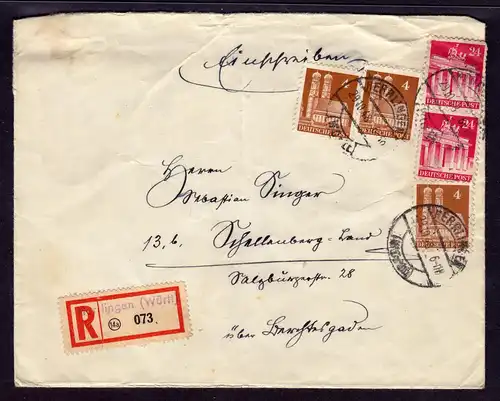 Einschreiben
24
DEUTSCHE POST
4
DEUTSCHE POST
4
DEUTSCHE POST
24
DEUTSCHE POST
4
DEUTSCHE POST
Herrn
Sebastian Singer
13.b. Schellenberg-Land
Salzburgerstr. 28
über Berchtesgaden
R
lingen (Württ)
14a
073.